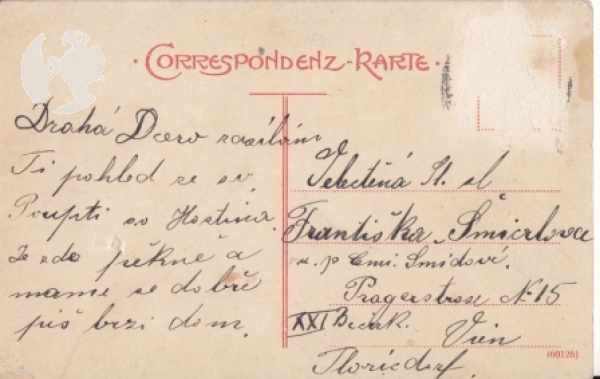 CORRESPONDENZ-KARTE.
Drahá Dcero zasílám
Ti pohled ze sv
Poupti sv Hostína
Je zde pěkně a
mame se dobře
piš brzi dom.
Velectěná Sl. sl
Františka Šmicrlova
u. p Emi. Smidové.
Pragerstrose N-15
XXI Becirk. Vien
Floricdorf.
(60126)